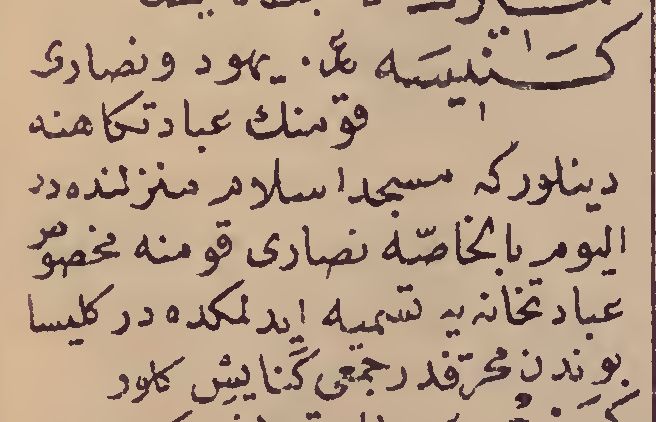 كَنِيسَه عد. يهود ونصارى
قومنك عبادتكاهنه
دينلور كه مسجد اسلام منزلنده در
اليوم بالخاصّه نصارى قومنه مخصوص
عبادتخانه يه تسميه ايدلمكده در كليسا
بوندن محرّفدر جمعى كَنايِس كلور